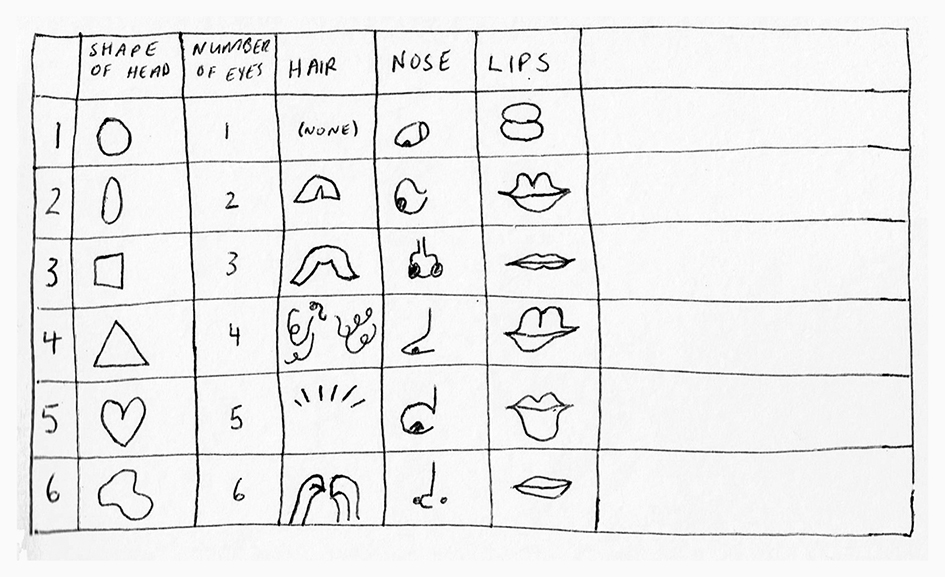 SHAPE OF HEAD
NUMBER OF EYES
HAIR
NOSE
LIPS
1 1 (NONE)
2 2
3 3
4 4
5 5
6 6